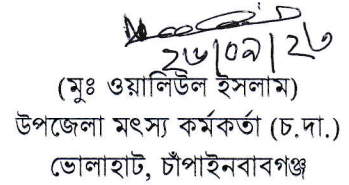 ২৬/০৯/২৩
(মুঃ ওয়ালিউল ইসলাম)
উপজেলা মৎস্য কর্মকর্তা (চ.দা.)
ভোলাহাট, চাঁপাইনবাবগঞ্জ